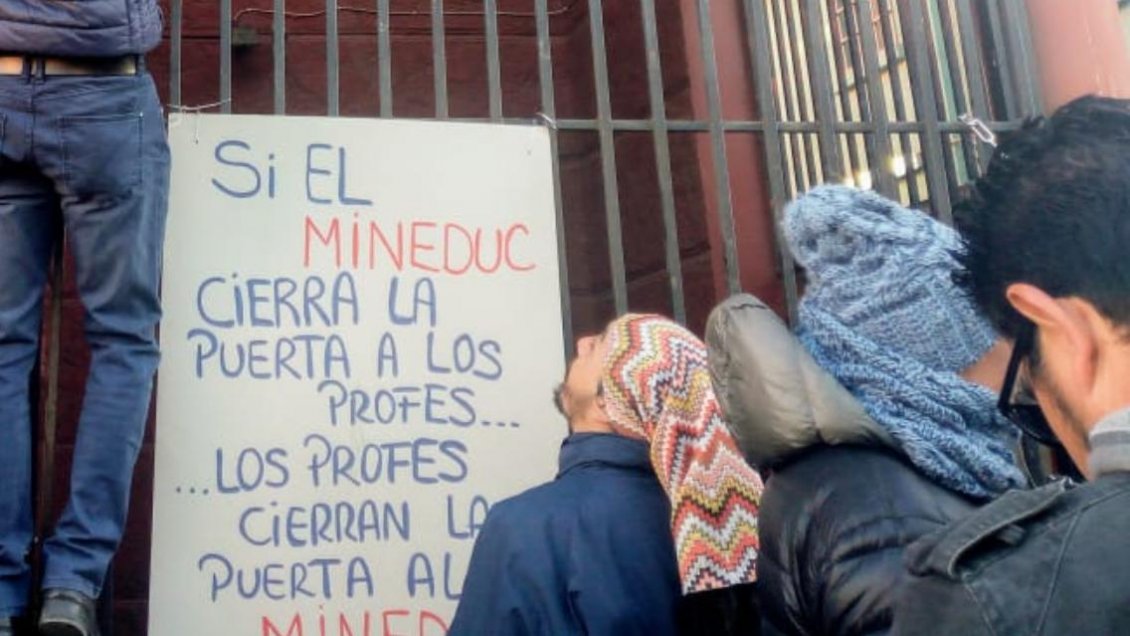 Si EL
MiNEDUC
CiERRA LA
PUERTA A LOS
PROFES...
...LOS PROFES
CiERRAN LA
PUERTA AL
MINED